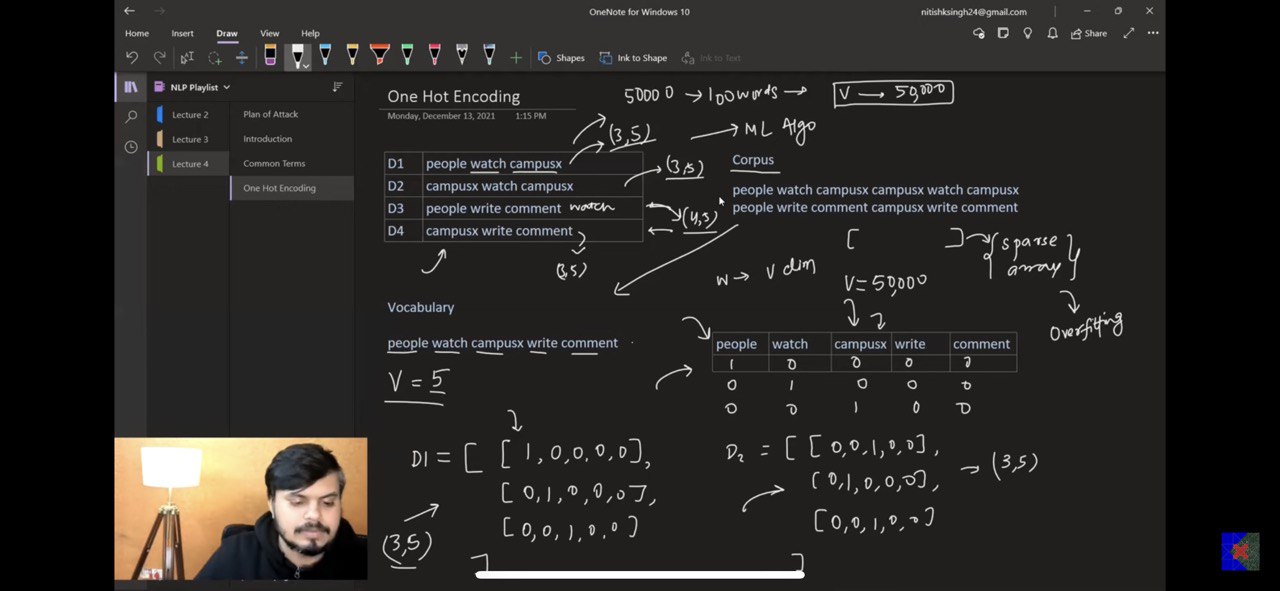 OneNote for Windows 10
nitishksingh24@gmail.com
Home Insert Draw View Help
Share
Shapes
Ink to Shape
Ink to Text
NLP Playlist
Lecture 2
Lecture 3
Lecture 4
Plan of Attack
Introduction
Common Terms
One Hot Encoding
One Hot Encoding
Monday, December 13, 2021 1:15 PM
50000 → 100 words → V → 50,000
(3,5) → ML Algo
D1 people watch campusx
D2 campusx watch campusx
D3 people write comment watch
D4 campusx write comment
(3,5)
(4,5)
(3,5)
Corpus
people watch campusx campusx watch campusx
people write comment campusx write comment
[ ] → { sparse
array }
Overfitting
W → V dim
V = 50,000
Vocabulary
people watch campusx write comment
V = 5
people watch campusx write comment
1 0 0 0 0
0 1 0 0 0
0 0 1 0 0
D1 = [ [ 1, 0, 0, 0, 0],
[ 0, 1, 0, 0, 0],
[ 0, 0, 1, 0, 0]
]
(3,5)
D2 = [ [ 0, 0, 1, 0, 0],
[ 0, 1, 0, 0, 0],
[ 0, 0, 1, 0, 0]
]
→ (3,5)